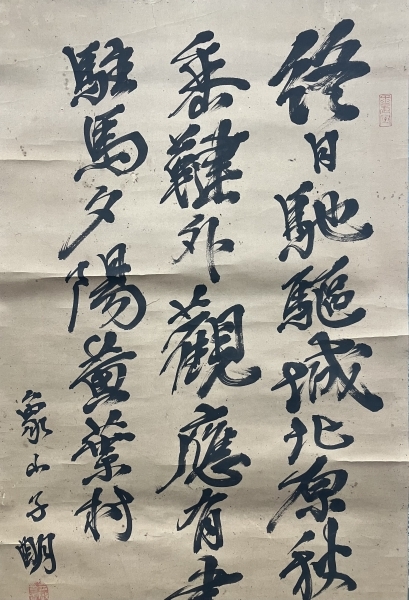 終日馳驅城北原秋
乘鞾外觀應有
駐馬夕陽黃葉村
象山子明